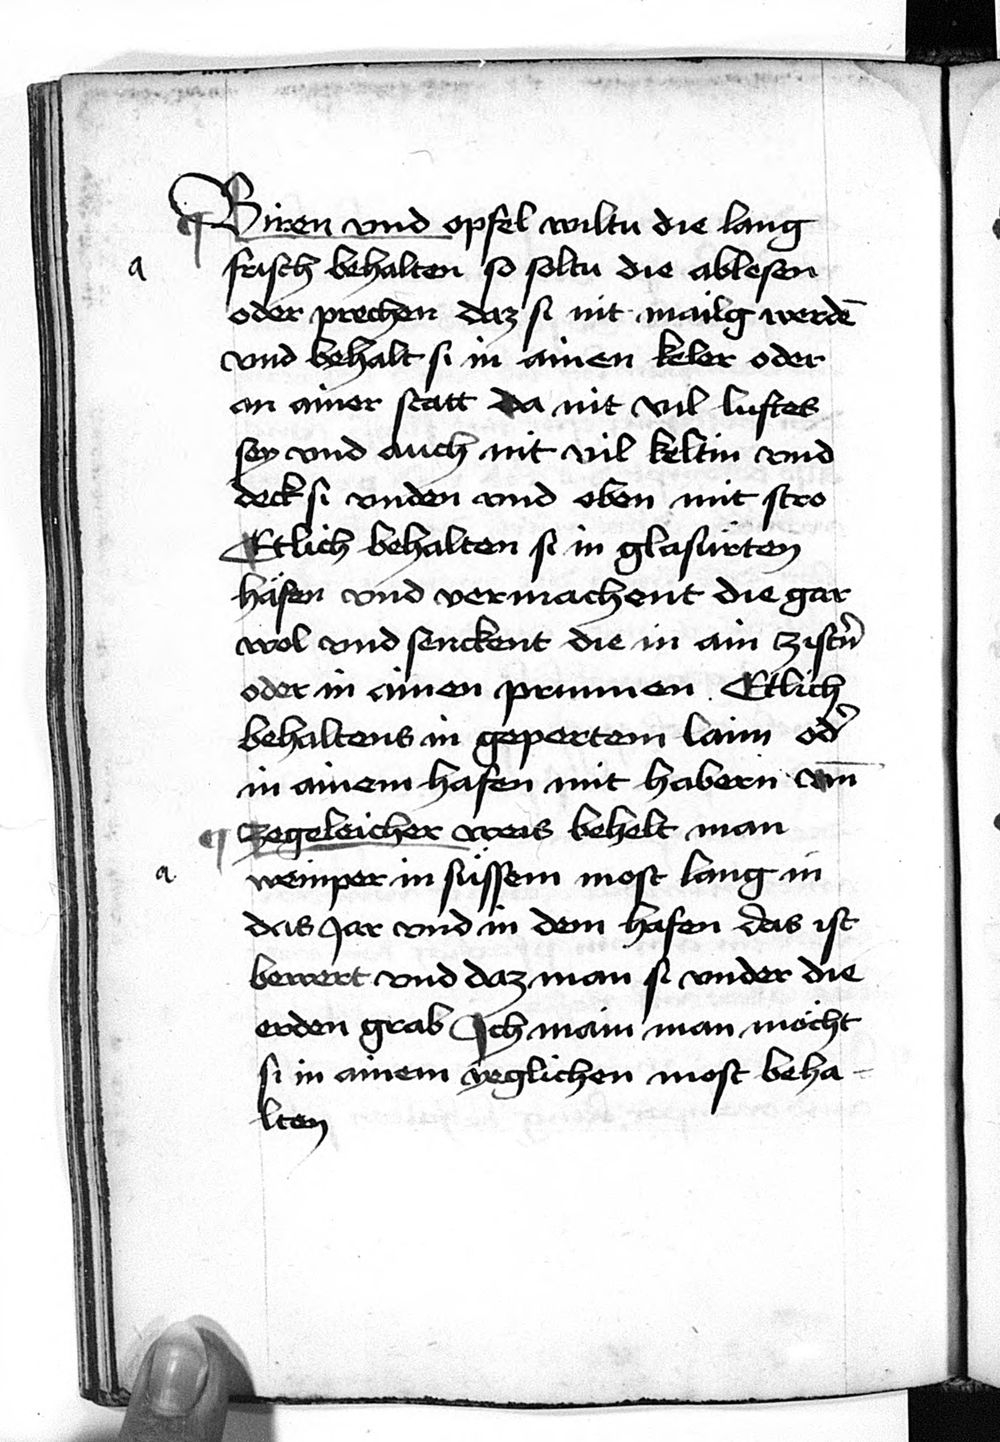 ¶ Biren vnd opfel wiltu die lang
a frisch behalten so soltu die ablesen
oder prechen daz si nit mailg werdē
vnd behalt si in ainen keler oder
an ainer statt da nit vil luftes
sey vnd auch nit vil keltin vnd
deck si vnden vnd oben mit stro
Etlich behalten si in glasürten
häfen vnd vermachent die gar
wol vnd senckent die in ain zistn̄
oder in ainen prunnen . Etlich
behaltens in gepertem laim od̄
in ainem hafen mit habern
¶ Zegeleicher weis behelt man
a weinper in süssem most lang in
das Jar vnd in dem hafen das ist
bewert vnd daz man si vnder die
erden grab Ich main man möcht
si in ainem yeglichen most beha-
lten